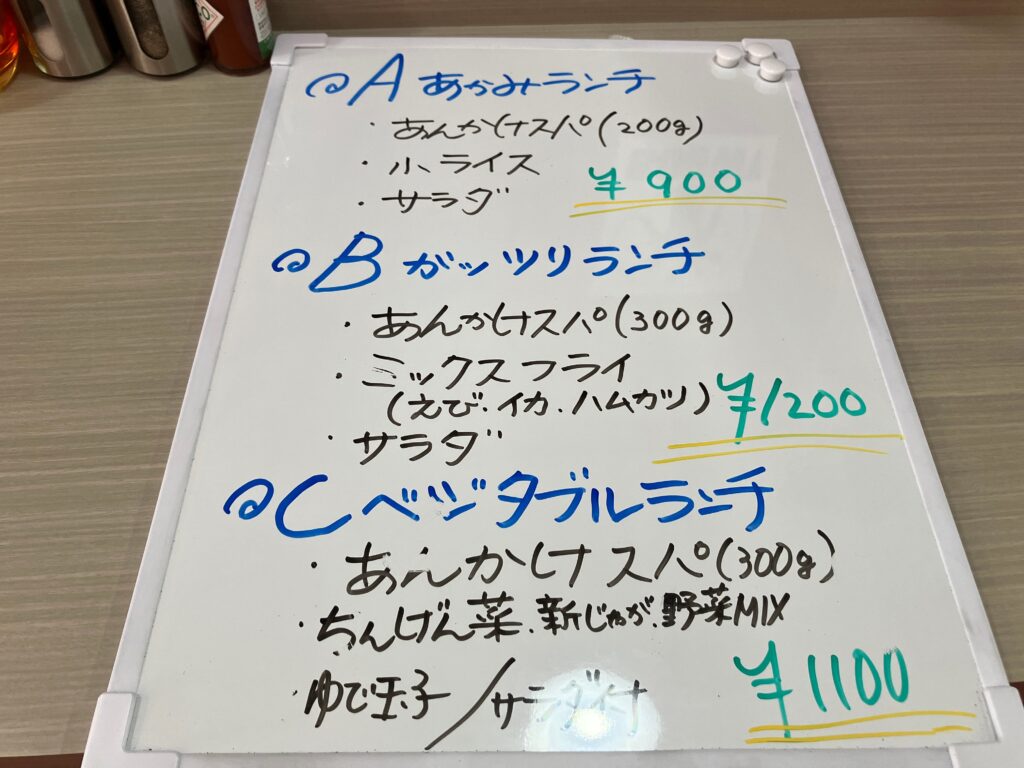 ◎A あかみランチ
・あんかけスパ(200g)
・小ライス
・サラダ
¥900
◎B ガッツリランチ
・あんかけスパ(300g)
・ミックスフライ
(えび.イカ.ハムカツ)
・サラダ
¥1200
◎C ベジタブルランチ
・あんかけスパ(300g)
・ちんげん菜.新じゃが.野菜MIX
・ゆで玉子/サラダ付
¥1100